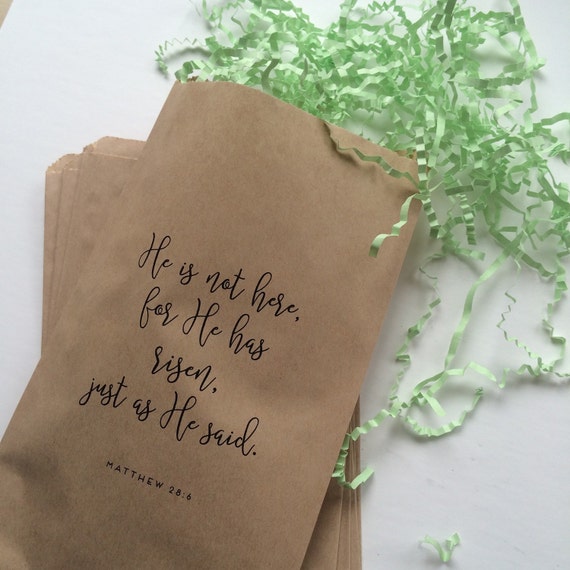 He is not here,
for He has
risen,
just as He said.
MATTHEW 28:6